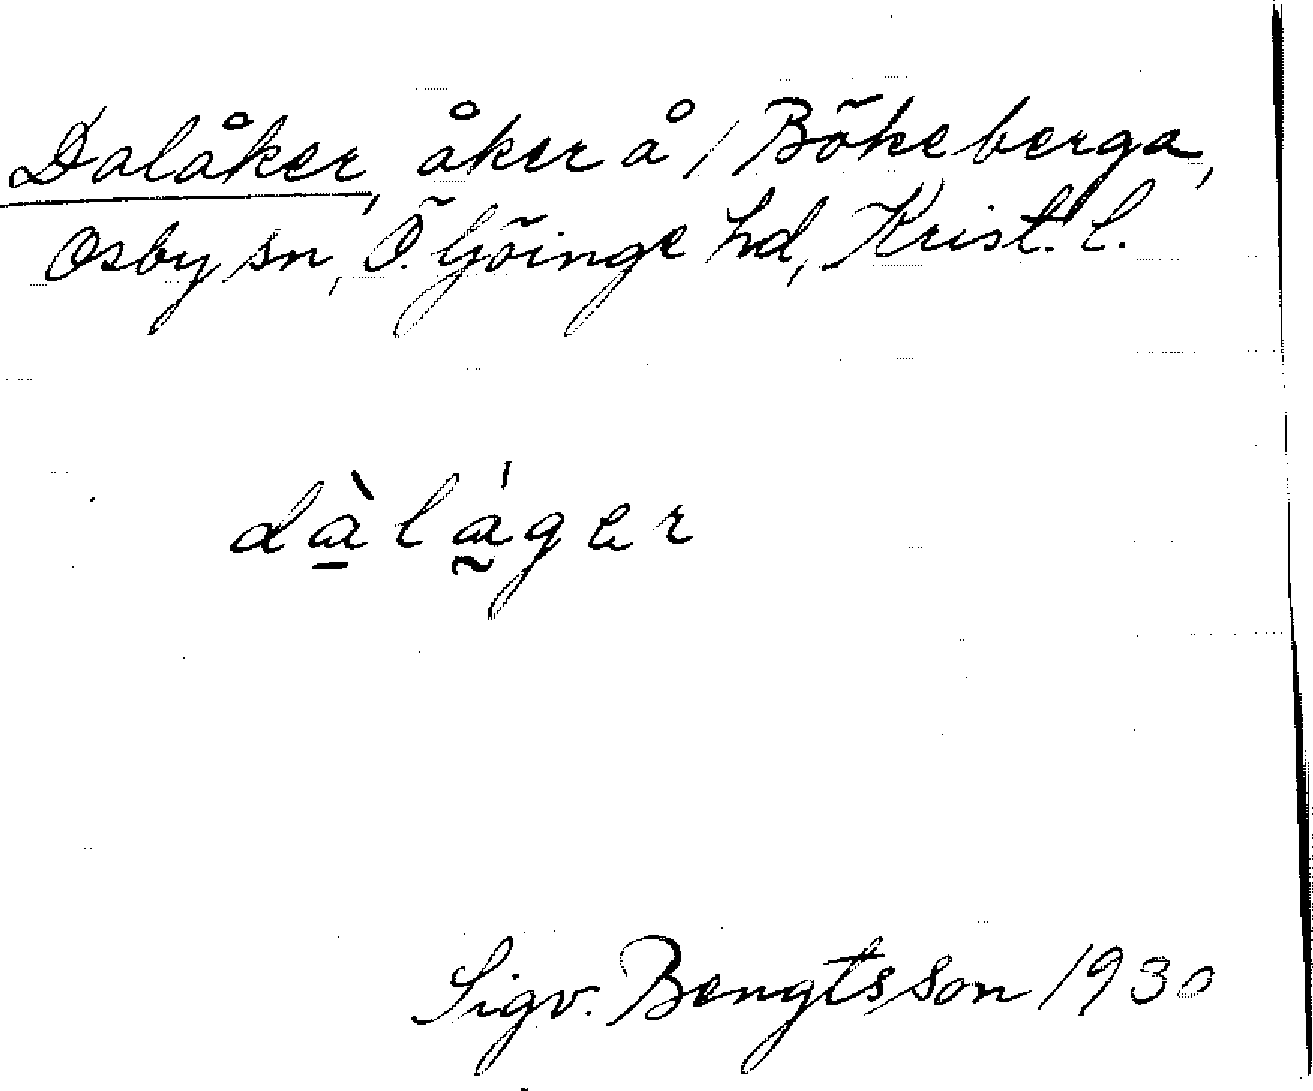 Dalåker, åker å / Bökeberga,
Osby sn, Ö. Göinge hd, Krist. l.
dàláger
Sigv. Bengtsson 1930